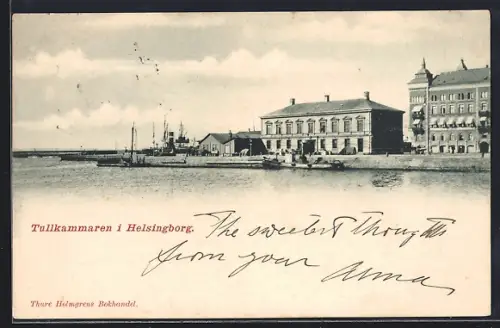 Tullkammaren i Helsingborg.
The sweetest Thoughts
from your Anna
Thure Holmgrens Bokhandel.